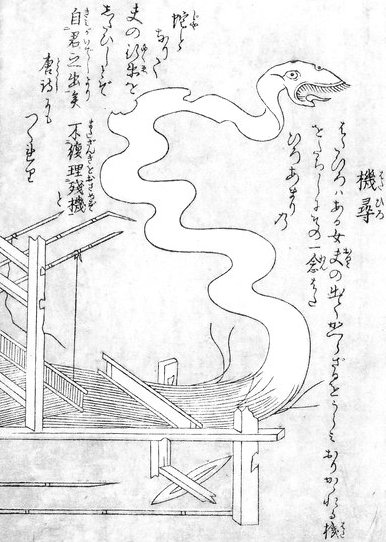 機尋
はたひろハある女夫の出てかへらざるをうらミおりかゝれる機
をたちしにその一念はた
ひろあまりの
蛇と
なりて
夫の行衛を
したひしとぞ
自君之出矣 不復理残機と
唐詩にも
つくれり